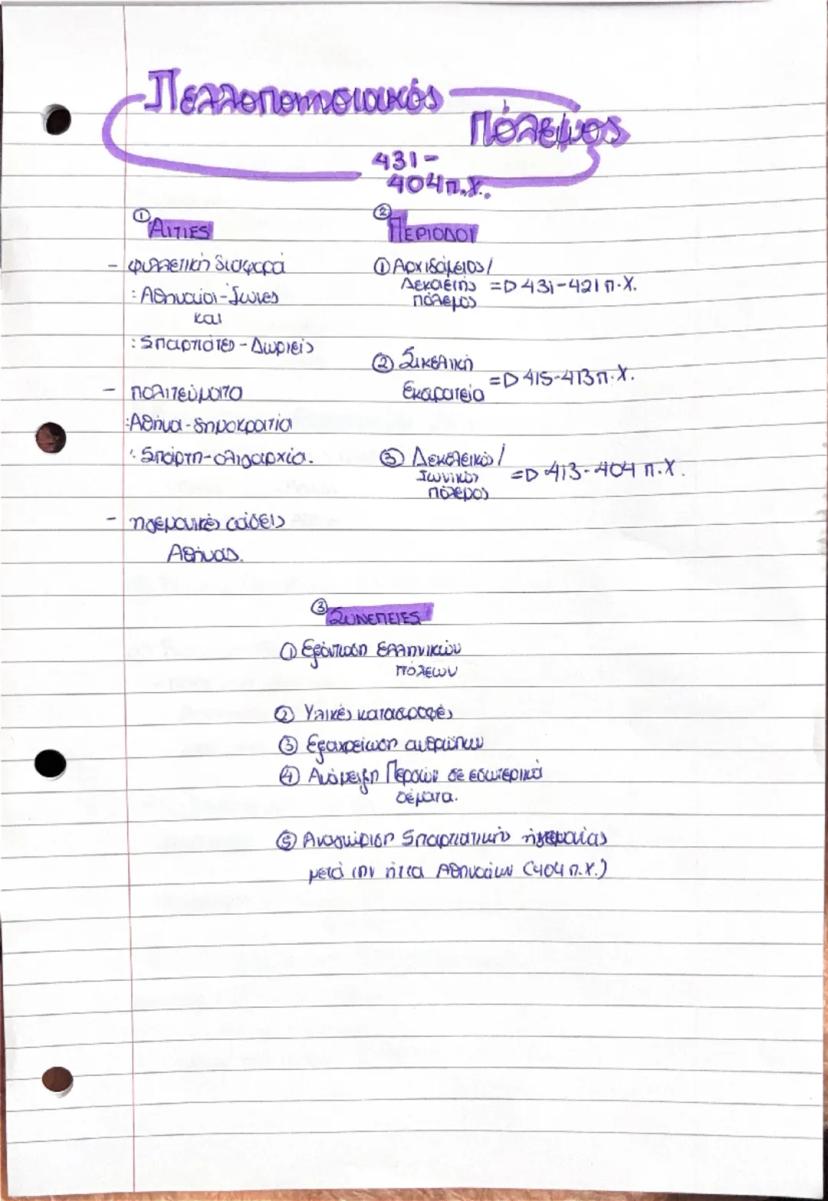 Πελλοποννησιακός
Πόλεμος
431-
404 π.Χ.
① ΑΙΤΙΕΣ
- φυλλετική διαφορά
: Αθηναίοι-Ίωνες
και
: Σπαρτιάτες-Δωριείς
- πολιτεύματα
: Αθήνα-δημοκρατία
: Σπάρτη-ολιγαρχία.
- ηγεμονικές
Αθήνας.
② ΠΕΡΙΟΔΟΙ
① Αρχιδάμειος/
Δεκαετής =D 431-421 π.Χ.
πόλεμος
② Σικελική
Εκστρατεία =D 415-413 π.Χ.
③ Δεκελεικός/
Ιωνικός =D 413-404 π.Χ.
πόλεμος
③ ΣΥΝΕΠΕΙΕΣ
① Εξόντωση ελληνικών
πόλεων
② Υλικές καταστροφές
③ Εξαχρείωση ανθρώπων
④ Ανάμειξη Περσών σε εσωτερικά
θέματα.
⑤ Αναγνώριση Σπαρτιατικής ηγεμονίας
μετά την ήττα Αθηναίων (404 π.Χ.)